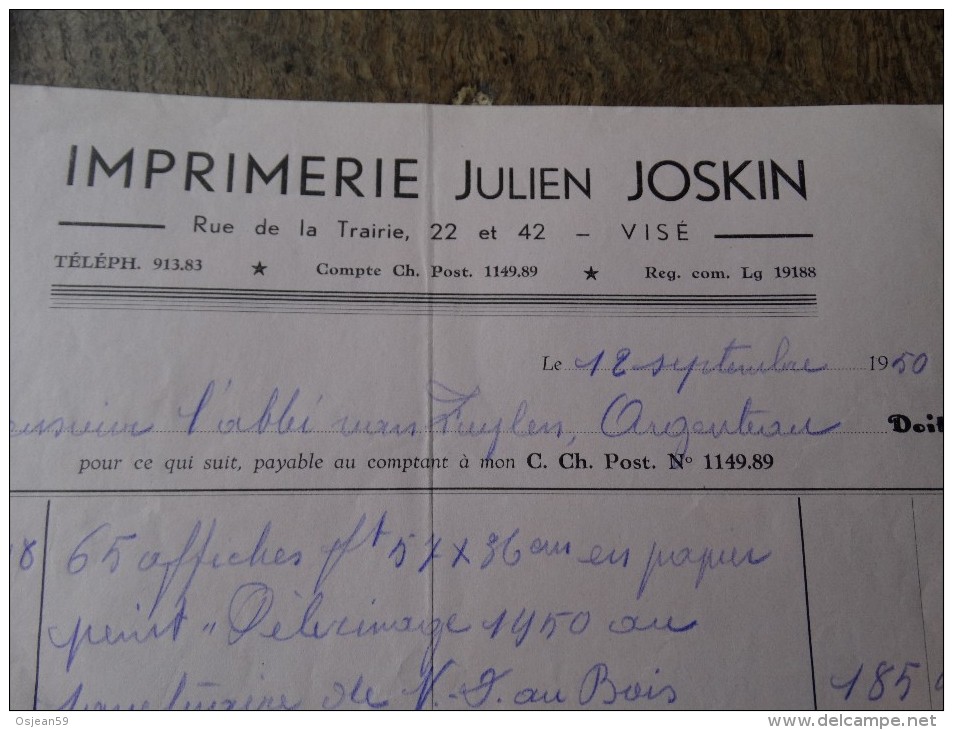 IMPRIMERIE JULIEN JOSKIN
Rue de la Trairie, 22 et 42 – VISÉ
TÉLÉPH. 913.83 ★ Compte Ch. Post. 1149.89 ★ Reg. com. Lg 19188
Le 12 septembre 1950
l'abbé van Zuylen, Argenteau Doit
pour ce qui suit, payable au comptant à mon C. Ch. Post. Nº 1149.89
65 affiches ft 57 x 36 cm en papier
peint "Pèlerinage 1950 au
sanctuaire de N.D. au Bois 185
Osjean59
www.delcampe.net